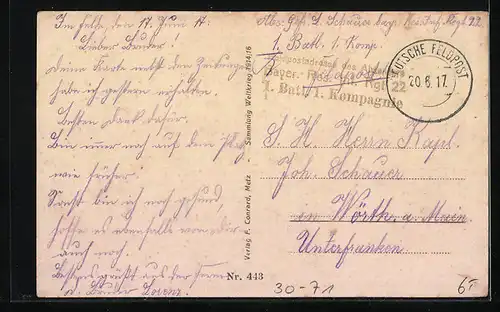 Im Felde, den 17. Juni 17.
Lieber Bruder!
Deine Karte nebst den Zeitungen
habe ich gestern erhalten.
Besten Dank dafür.
Bin immer noch auf dem Platz
wie früher!
Sonst bin ich noch gesund,
hoffe es ebenfalls von dir
auch noch.
Es grüßt aus der Ferne
d. Bruder Lorenz.
Verlag F. Conrard, Metz Sammlung Weltkrieg 1914/16
Nr. 443
Abs. Gefr. L. Schauer bay. Res. Inf. Regt. 22
1. Batl. 1. Komp.
Feldpostadresse des Absenders
Bayer. Res. Inf. Rgt. 22
1. Batl. 1. Kompagnie
DEUTSCHE FELDPOST
20.6.17.
S. H. Herrn Kapl.
Joh. Schauer
in Wörth a. Main
Unterfranken
30-71
65